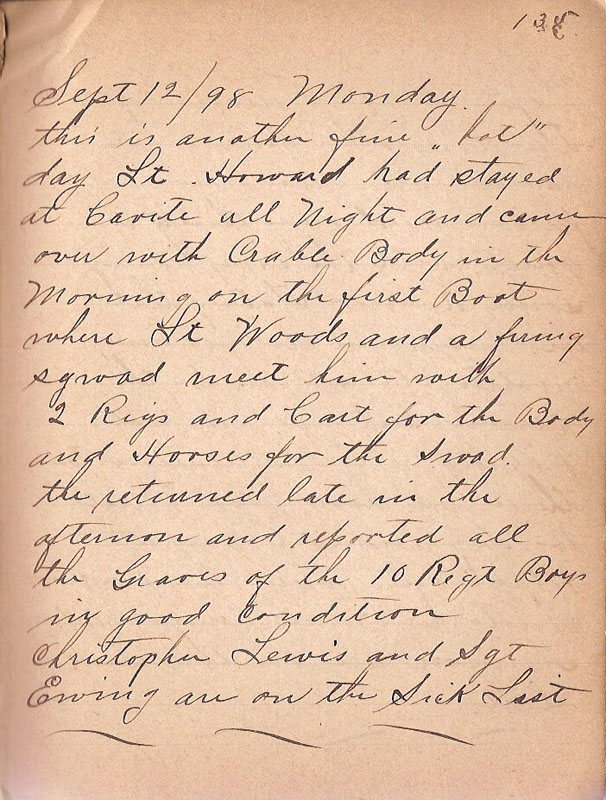 138
Sept 12/98 Monday.
this is another fine „hot"
day Lt. Howard had stayed
at Cavite all Night and came
over with Crable Body in the
Morning on the first Boat
where Lt Woods and a firing
sqwad meet him with
2 Rigs and Cart for the Body
and Horses for the Swad.
the returned late in the
afternon and reported all
the Graves of the 10 Regt Boys
in good Condition
Christopher Lewis and Sgt
Ewing are on the Sick List